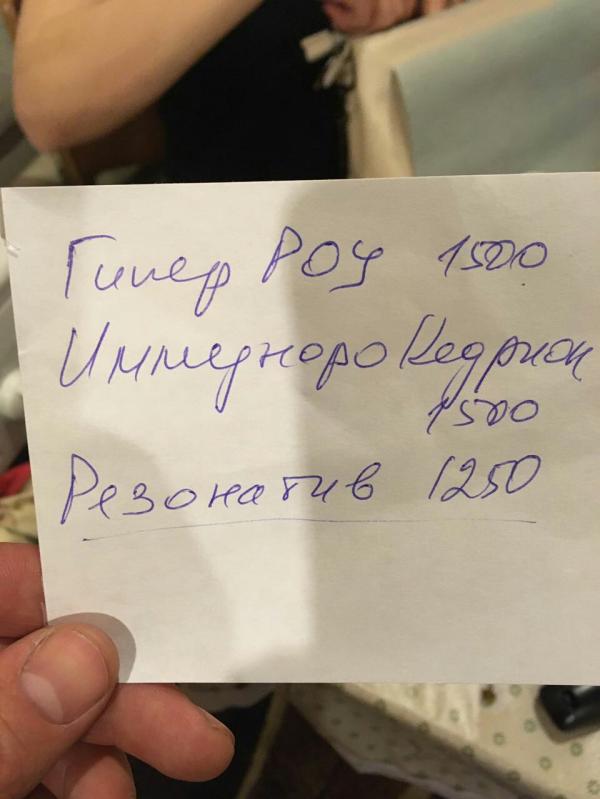 Гипер РОУ 1500
Иммуноро Кедрион
1500
Резонатив 1250